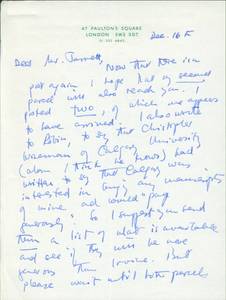 47 PAULTON'S SQUARE
LONDON SW3 5DT
Dec. 16
Dear Mr. Jarrett,
Now that there is a
post again I hope that my second
parcel will also reach you. I
posted two, of which one appears
to have arrived. I also wrote
to Robin, to say that Christopher
Wiseman of Calgary University
(whom I think he knows) had
written to say that Calgary was
interested in buying any manuscripts
of mine and would pay
generously. So I suggest you send
them a list of what is available
and see if they will be more
generous than Irvine. But
please wait until both parcels